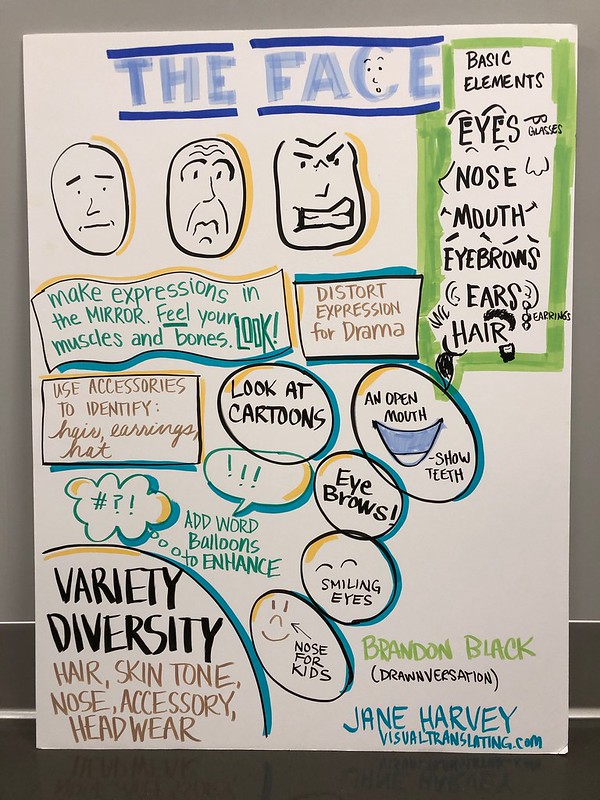 THE FACE
BASIC
ELEMENTS
EYES
GLASSES
NOSE
MOUTH
EYEBROWS
EARS
EARRINGS
HAIR
make expressions in
the MIRROR. Feel your
muscles and bones. LOOK!
DISTORT
EXPRESSION
for Drama
USE ACCESSORIES
TO IDENTIFY:
hair, earrings,
hat
LOOK AT
CARTOONS
AN OPEN
MOUTH
-SHOW
TEETH
!!!
#?!
Eye
Brows!
ADD WORD
Balloons
to ENHANCE
SMILING
EYES
VARIETY
DIVERSITY
HAIR, SKIN TONE,
NOSE, ACCESSORY,
HEADWEAR
NOSE
FOR
KIDS
BRANDON BLACK
(DRAWNVERSATION)
JANE HARVEY
VISUALTRANSLATING.com